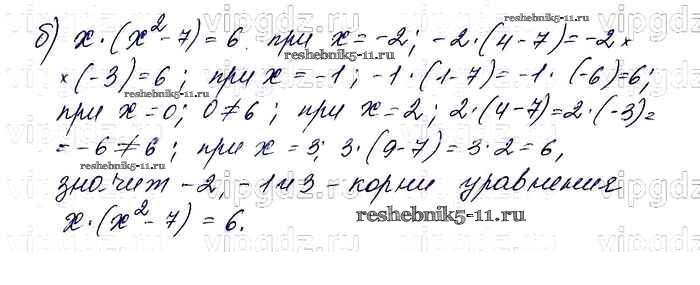 б) x·(x²-7)=6. при x=-2; -2·(4-7)=-2×
×(-3)=6; при x=-1; -1·(1-7)=-1·(-6)=6;
при x=0; 0≠6; при x=2; 2·(4-7)=2·(-3)=
=-6≠6; при x=3; 3·(9-7)=3·2=6,
значит -2, -1 и 3 - корни уравнения
x·(x²-7)=6.
reshebnik5-11.ru
reshebnik5-11.ru
reshebnik5-11.ru
reshebnik5-11.ru
reshebnik5-11.ru
vipgdz.ru